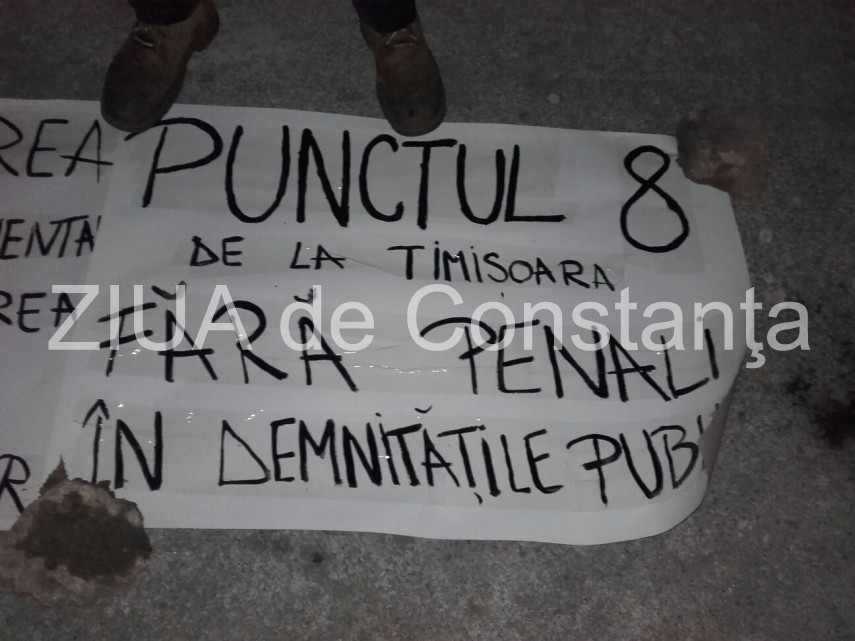 PUNCTUL 8
DE LA TIMIȘOARA
FĂRĂ PENALI
ÎN DEMNITĂȚILE PUB
REA
ENTA
REA
R
ZIUA de Constanţa